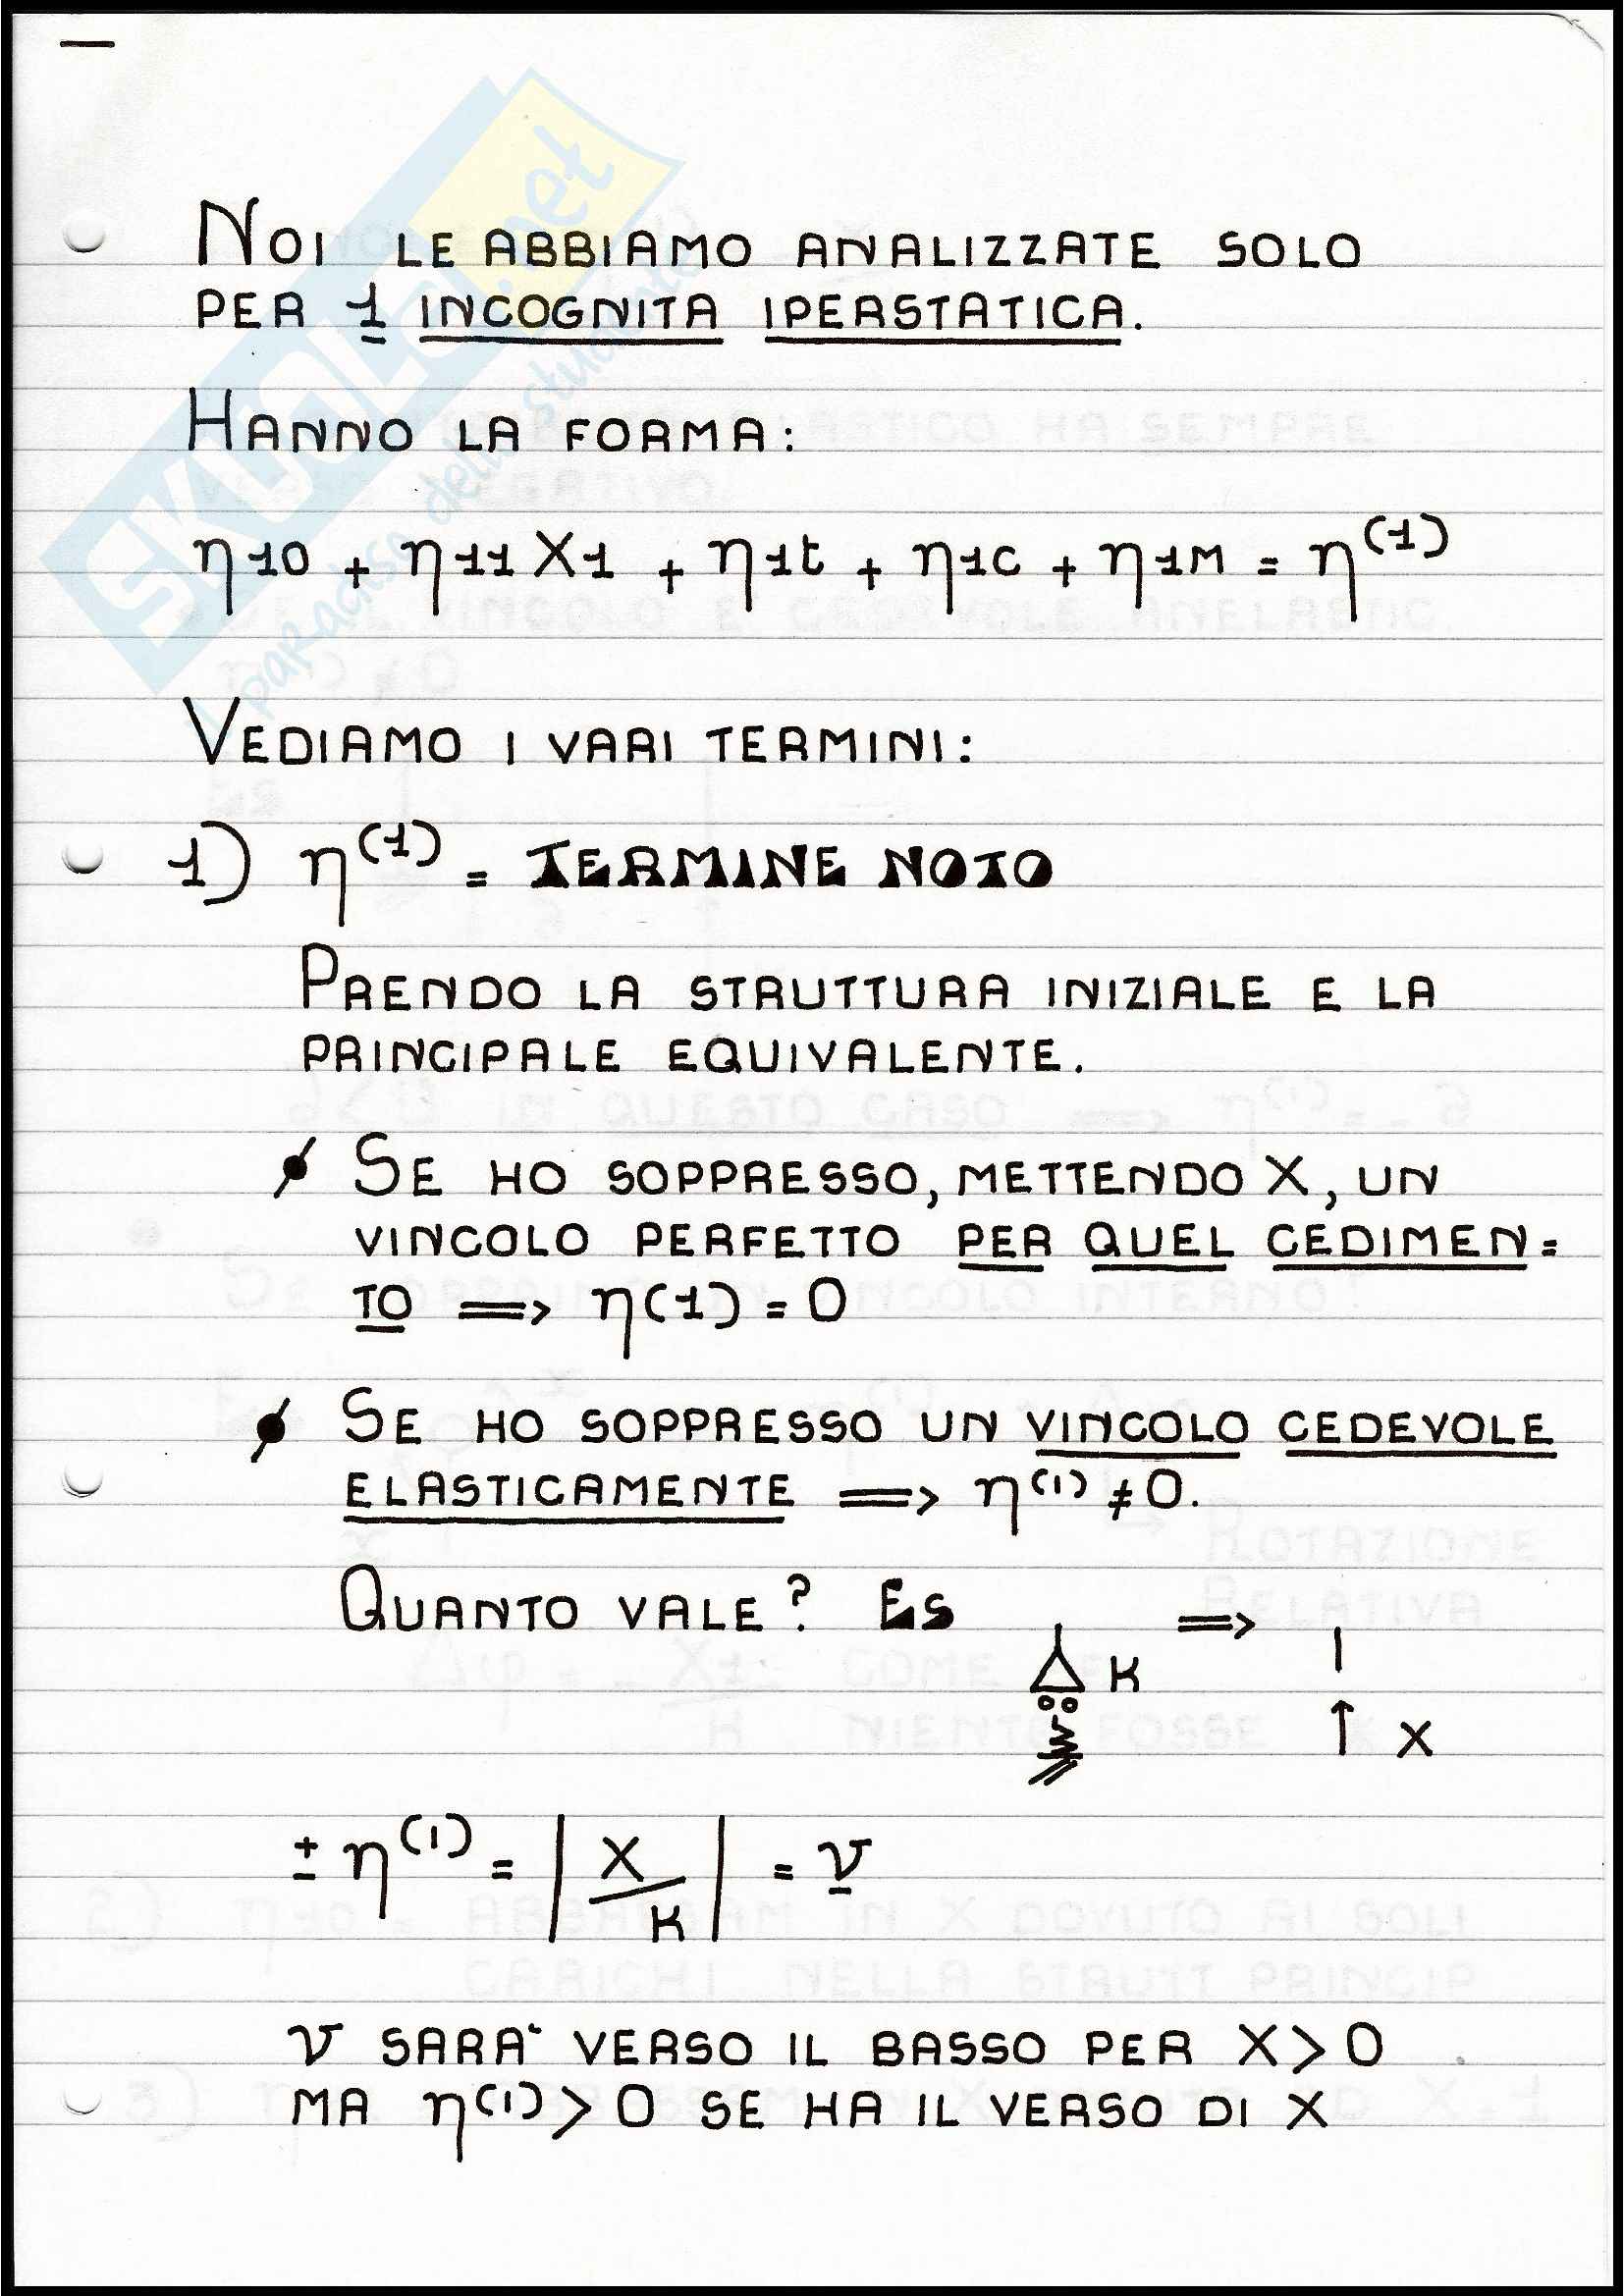 NOI LE ABBIAMO ANALIZZATE SOLO
PER 1 INCOGNITA IPERSTATICA.
HANNO LA FORMA:
η10 + η11 X1 + η1t + η1c + η1M = η(1)
VEDIAMO I VARI TERMINI:
1) η(1) = TERMINE NOTO
PRENDO LA STRUTTURA INIZIALE E LA
PRINCIPALE EQUIVALENTE.
SE HO SOPPRESSO, METTENDO X, UN
VINCOLO PERFETTO PER QUEL CEDIMEN=
TO => η(1) = 0
SE HO SOPPRESSO UN VINCOLO CEDEVOLE
ELASTICAMENTE => η(1) ≠ 0.
QUANTO VALE? ES =>
K
X
± η(1) = | X/K | = v
v SARA' VERSO IL BASSO PER X > 0
MA η(1) > 0 SE HA IL VERSO DI X
SKUOLA.net
paradiso dello studente